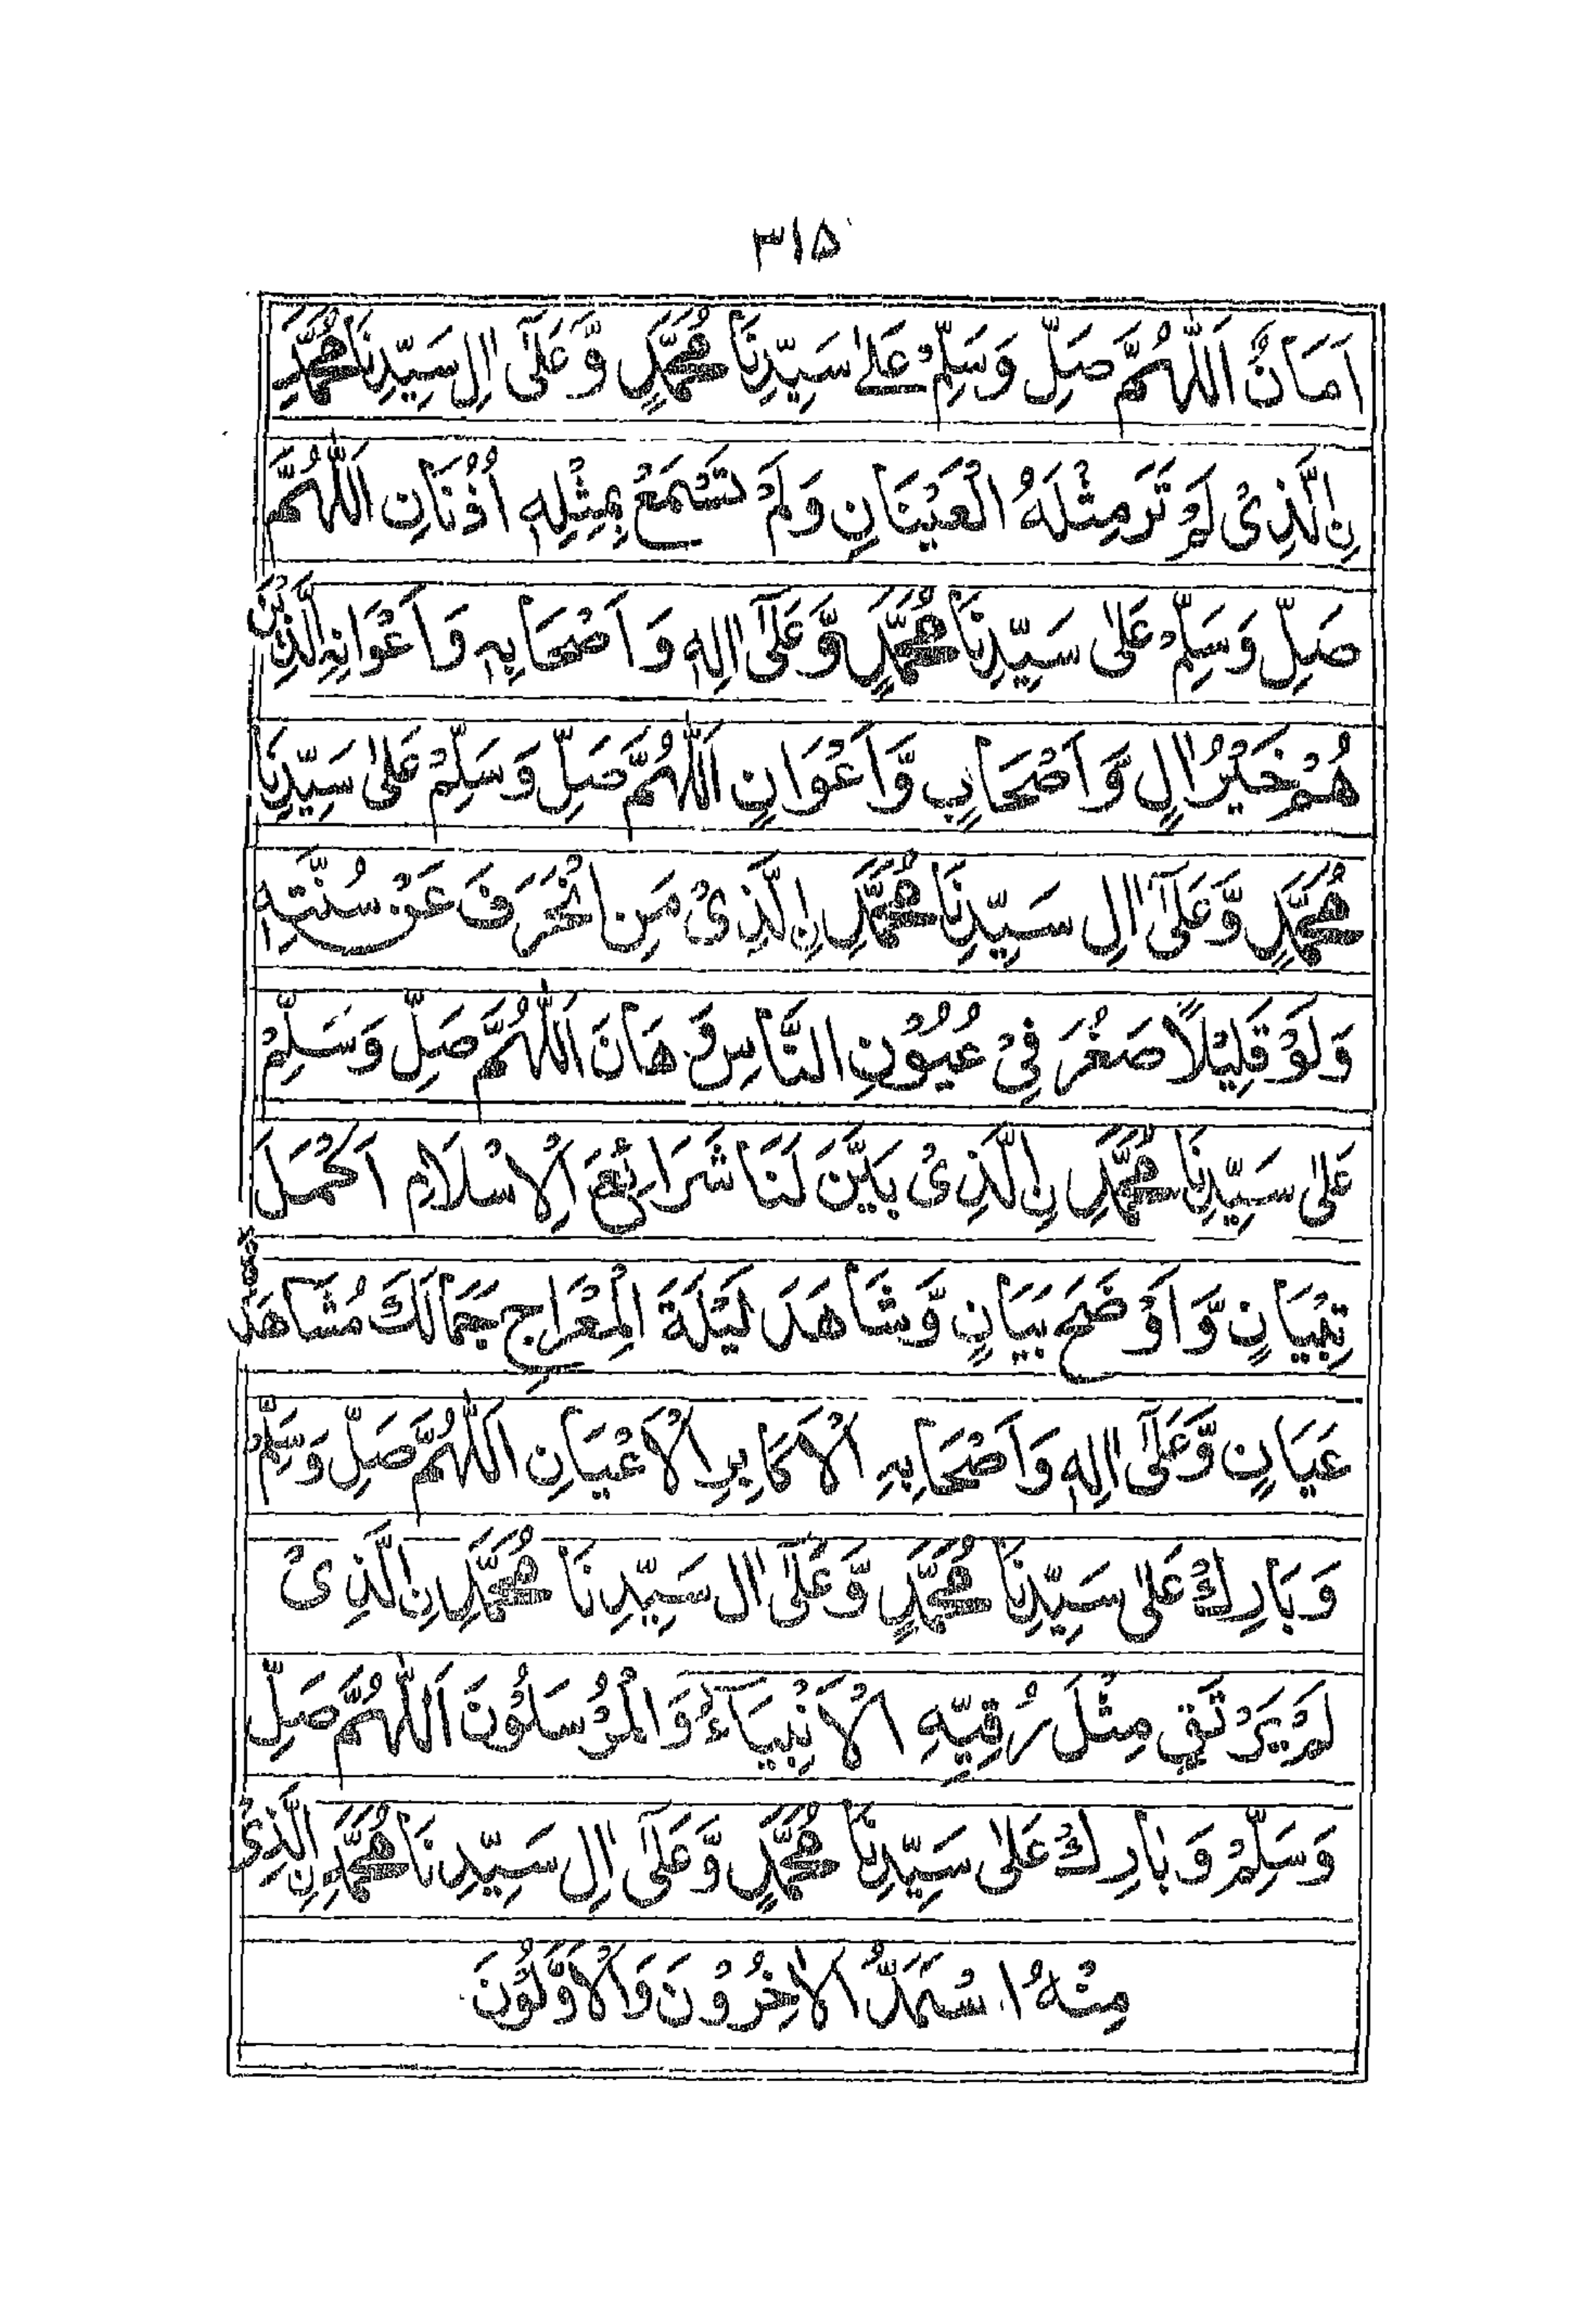 ۳۱۵
اَمَانٌ اَللّٰهُمَّ صَلِّ وَسَلِّمْ عَلٰے سَيِّدِنَا مُحَمَّدٍ وَّعَلٰٓى اٰلِ سَيِّدِنَا مُحَمَّدِ
نِ الَّذِىْ لَمْ تَرَ مِثْلَهُ الْعَيْنَانِ وَلَمْ تَسْمَعْ بِمِثْلِهٖ اُذُنَانِ اَللّٰهُمَّ
صَلِّ وَسَلِّمْ عَلٰى سَيِّدِنَا مُحَمَّدٍ وَّعَلٰٓى اٰلِهٖ وَاَصْحَابِهٖ وَاَعْوَانِهِ الَّذِيْنَ
هُمْ خَيْرُ اٰلٍ وَّاَصْحَابٍ وَّاَعْوَانٍ اَللّٰهُمَّ صَلِّ وَسَلِّمْ عَلٰى سَيِّدِنَا
مُحَمَّدٍ وَّعَلٰٓى اٰلِ سَيِّدِنَا مُحَمَّدِ نِ الَّذِىْ مَنِ انْحَرَفَ عَنْ سُنَّتِهٖ
وَلَوْ قَلِيْلًا صَغُرَ فِىْ عُيُوْنِ النَّاسِ وَهَانَ اَللّٰهُمَّ صَلِّ وَسَلِّمْ
عَلٰى سَيِّدِنَا مُحَمَّدِ نِ الَّذِىْ بَيَّنَ لَنَا شَرَائِعَ الْاِسْلَامِ اَكْمَلَ
تِبْيَانٍ وَّاَوْضَحَ بَيَانٍ وَّشَاهَدَ لَيْلَةَ الْمِعْرَاجِ جَمَالَكَ مُشَاهَدَةَ
عَيَانٍ وَّعَلٰٓى اٰلِهٖ وَاَصْحَابِهِ الْاَكَابِرِ الْاَعْيَانِ اَللّٰهُمَّ صَلِّ وَسَلِّمْ
وَبَارِكْ عَلٰى سَيِّدِنَا مُحَمَّدٍ وَّعَلٰٓى اٰلِ سَيِّدِنَا مُحَمَّدِ نِ الَّذِىْ
لَمْ يَرْتَقِ مِثْلَ رُقِيِّهِ الْاَنْبِيَآءُ وَالْمُرْسَلُوْنَ اَللّٰهُمَّ صَلِّ
وَسَلِّمْ وَبَارِكْ عَلٰى سَيِّدِنَا مُحَمَّدٍ وَّعَلٰٓى اٰلِ سَيِّدِنَا مُحَمَّدِ نِ الَّذِىْ
مِنْهُ اسْتَمَدَّ الْاٰخِرُوْنَ وَالْاَوَّلُوْنَ